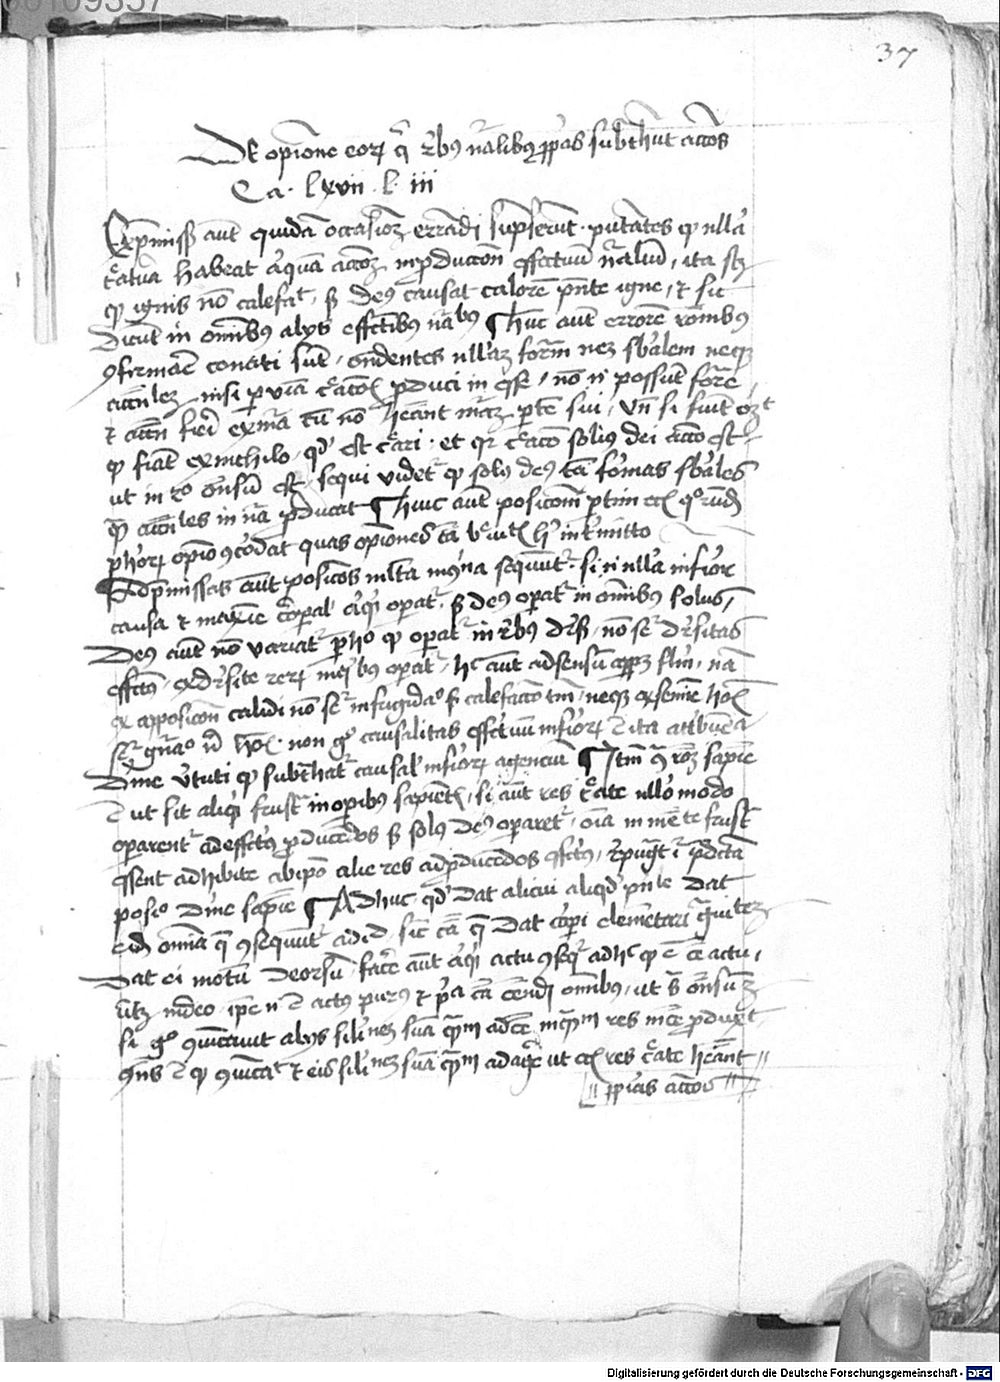 37
De opinione eorum qui rebus naturalibus proprias subtrahunt actiones
Ca. lxvii. l. iii
Ex premissis autem quidam occasionem errandi sumpserunt putantes quod nulla
creatura habeat aliquam actionem in productione effectuum naturalium, ita scilicet
quod ignis non calefaciat, sed deus causat calorem presente igne, et sic
dicunt in omnibus aliis effectibus naturalibus Hunc autem errorem rationibus
confirmare conati sunt, ostendentes nullam formam nec substantialem neque
accidentalem nisi per viam creationis produci in esse, non enim possunt forme
et accidentia fieri ex materia cum non habeant materiam partem sui, unde si fiunt oportet
quod fiant ex nichilo, quod est creari. et quia creatio solius dei actio est
ut in 2o ostensum est, sequi videtur quod solus deus tam formas substantiales
quam accidentales in natura producat Huic autem positioni partim etiam quorundam
philosophorum opinio concordat quas opiniones
Ad premissas autem positiones multa inconvenientia sequuntur. si enim nulla inferior
causa et maxime corporalis aliquid operatur. sed deus operatur in omnibus solus,
deus autem non variatur per hoc quod operatur in rebus diversis, non sequetur diversitas
effectus ex diversitate rerum in quibus operatur, hoc autem ad sensum apparet falsum, nam
ex appositione calidi non sequitur infrigidatio sed calefactio tantum, neque ex semine hominis
sequitur generatio nisi hominis. non ergo causalitas effectuum inferiorum est ita attribuenda
divine virtuti quod subtrahatur causalitas inferiorum agencium Item contra rationem sapiencie
est ut sit aliquid frustra in operibus sapientis, si autem res create nullo modo
operarentur ad effectus producendos sed solus deus operaretur, omnia inmediate frustra
essent adhibite ab ipso alie res ad producendos effectus, repugnat igitur predicta
positio divine sapiencie Adhuc quod dat alicui aliquid principale dat
eidem omnia que consequuntur ad id, sicut causa que dat corpori elementari gravitatem
dat ei motum deorsum, facere autem aliquid actu consequitur ad hoc quod est esse actu,
ut patet in deo. ipse enim est actus purus et prima causa essendi omnibus, ut supra ostensum est
si ergo communicavit aliis similitudinem suam quantum ad esse inquantum res in esse produxit
consequens est quod communicavit et eis similitudinem suam quantum ad agere ut etiam res create habeant
proprias actiones
Digitalisierung gefördert durch die Deutsche Forschungsgemeinschaft - DFG